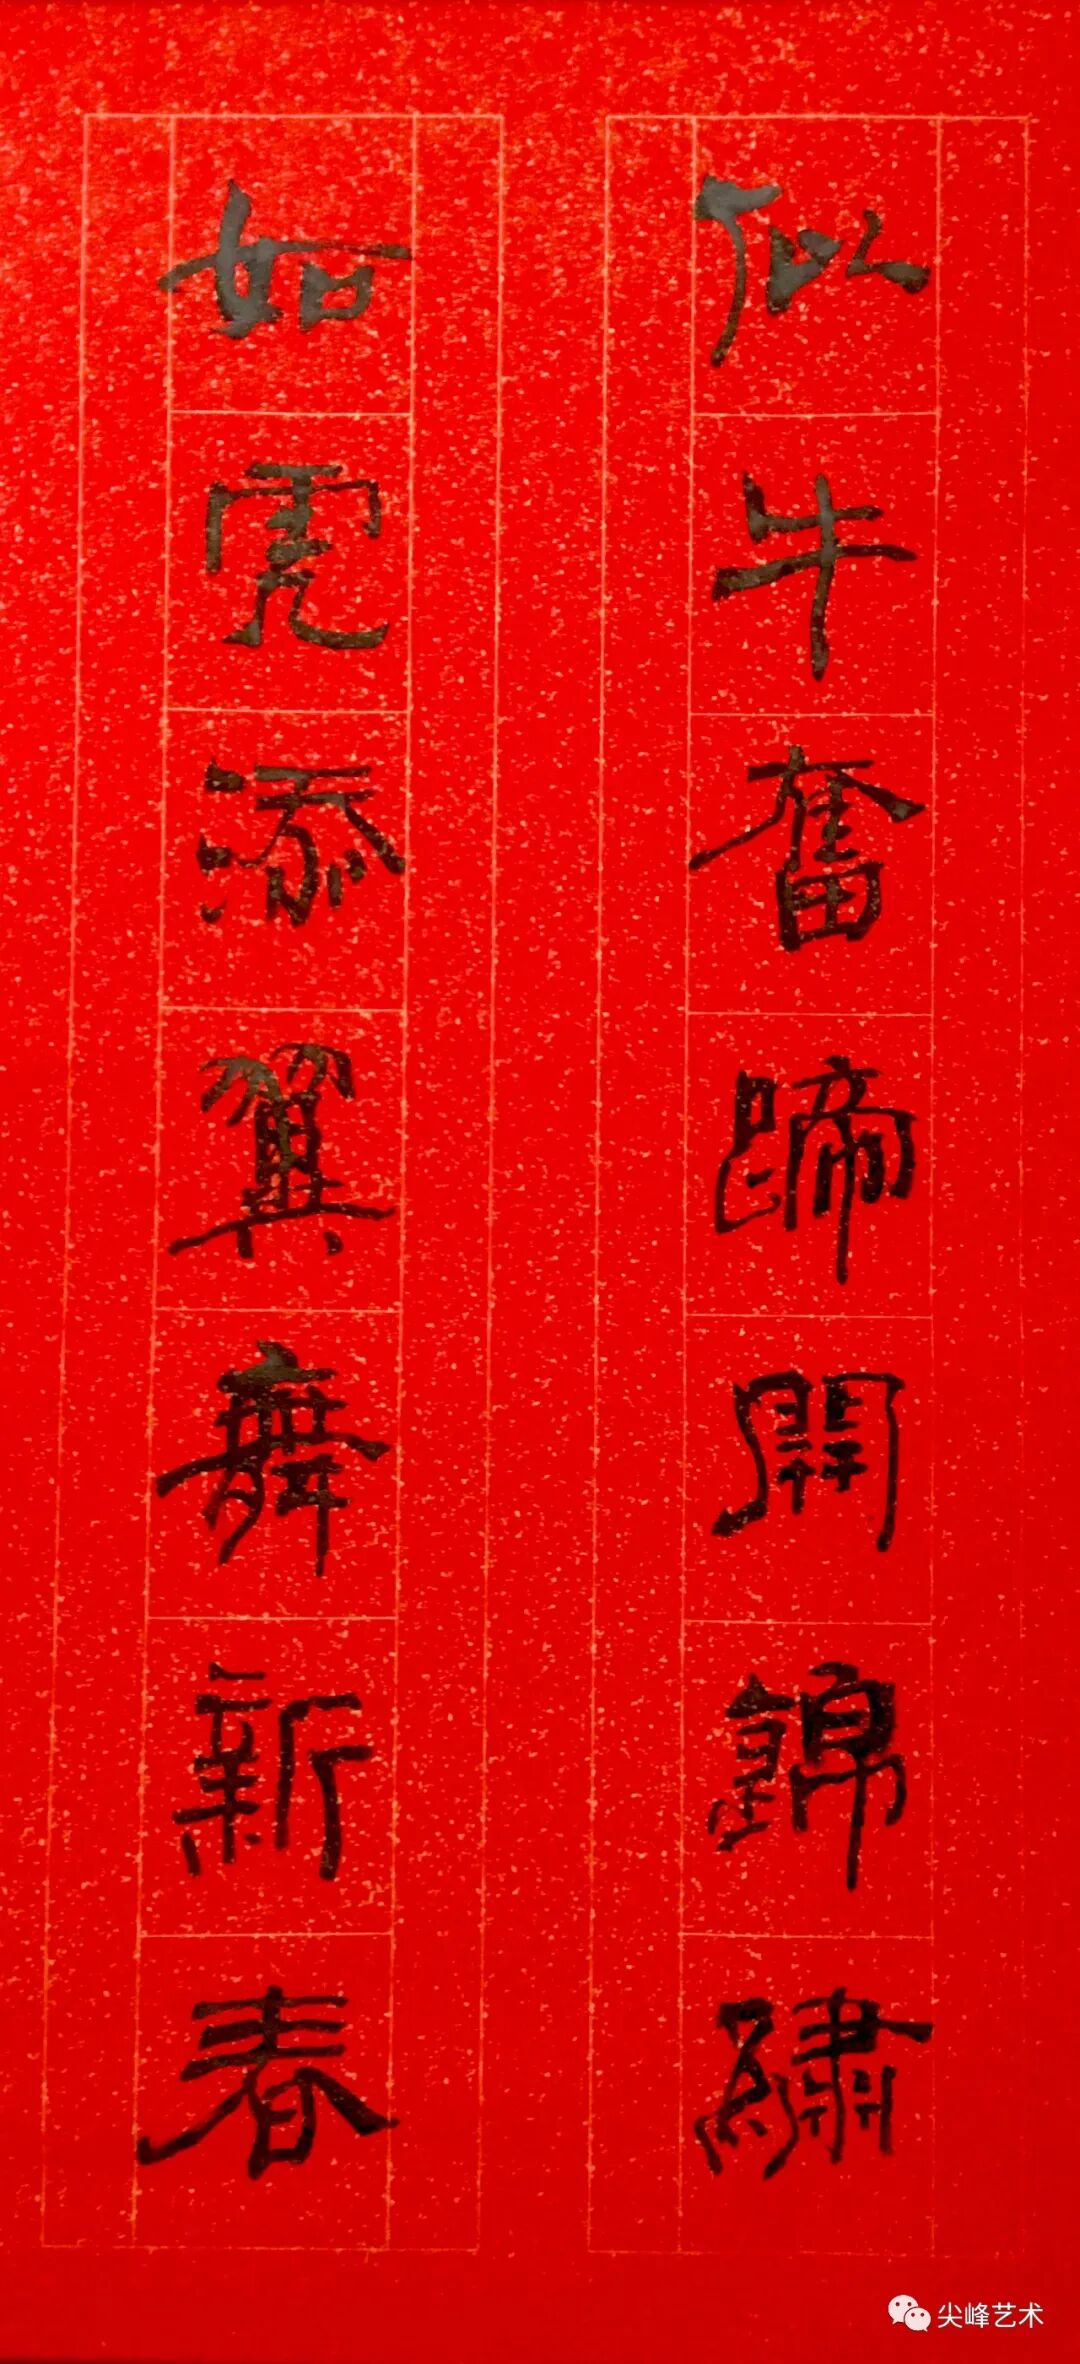 似牛奮蹄開錦繡
如虎添翼舞新春
尖峰艺术